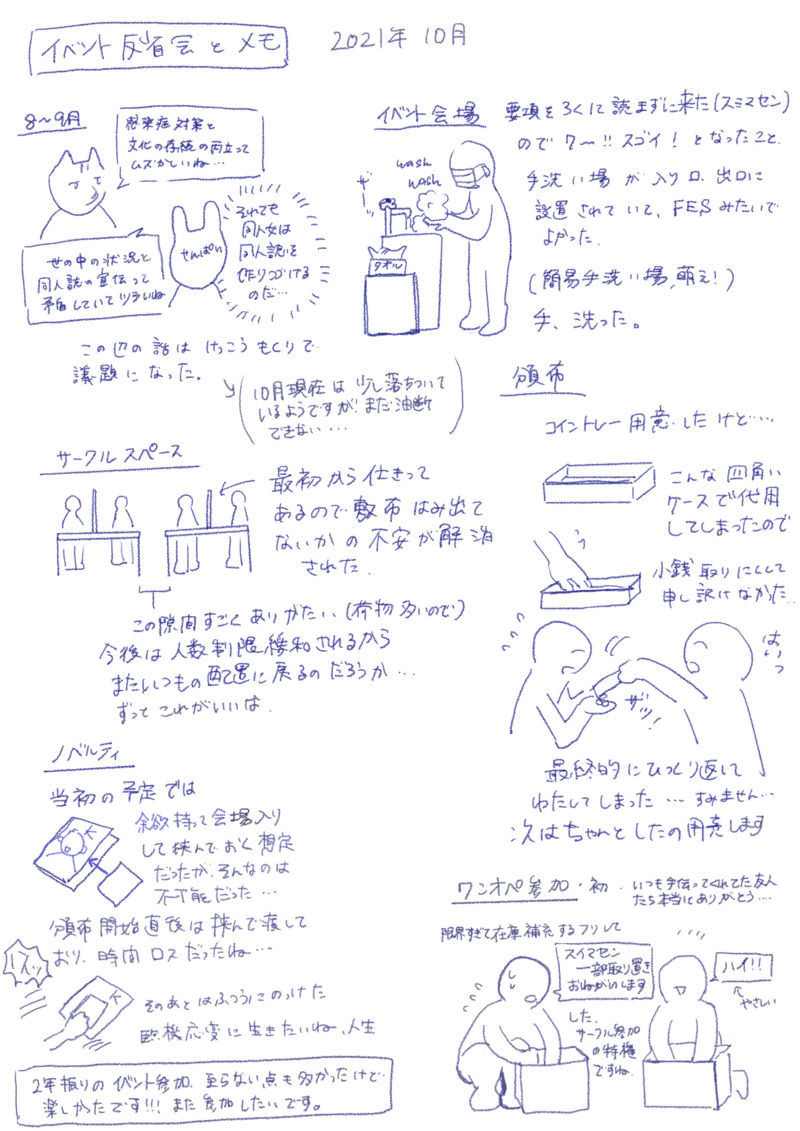 イベント反省会とメモ
2021年 10月
8～9月
感染症対策と
文化の存続の両立って
ムズかしいね…
せんぱい
それでも
同人女は
同人誌を
作りつづける
のだ…
世の中の状況と
同人誌の宣伝って
矛盾していてツラいね
この辺の話は けっこう もくりで
議題になった。
(10月現在は 少し落ちついて
いるようですが まだ油断
できない…)
イベント会場
要項をろくに読まずに来た(スミマセン)
ので ワ～!! スゴイ! となったこと
wash
wash
ザー
タオル
手洗い場が入り口、出口に
設置されていて、FESみたいで
よかった.
(簡易手洗い場,萌え!)
手、洗った。
サークルスペース
最初から仕きって
あるので敷布はみ出て
ないかの不安が解消
された.
この隙間すごくありがたい、(荷物多いので)
今後は人数制限緩和されるから
またいつもの配置に戻るのだろうか…
ずっとこれがいいは.
頒布
コイントレー用意したけど…
こんな四角い
ケースで代用
してしまったので
小銭取りにくくて
申し訳けなかた…
はいっ
ザッ!
最終的にひっくり返して
わたしてしまった… すみません…
次はちゃんとしたの用意します
ノベルティ
当初の予定では
余欲持って会場入り
して挟んでおく想定
だったが、そんなのは
不可能だった…
頒布開始直後は挟んで渡して
おり、時間ロスだったね…
そのあとはふつうにのっけた
臨機応変に生きたいね、人生
ワンオペ参加・初.
いつも手伝ってくれてた友人
たち本当にありがとう…
限界すぎて在庫補充するフリして
スイマセン
一部取り置き
おねがいします
した.
サークル参加
の特権
ですね.
ハイ!!
やさしい
2年振りのイベント参加、至らない点も多かったけど
楽しかったです!!! また参加したいです。